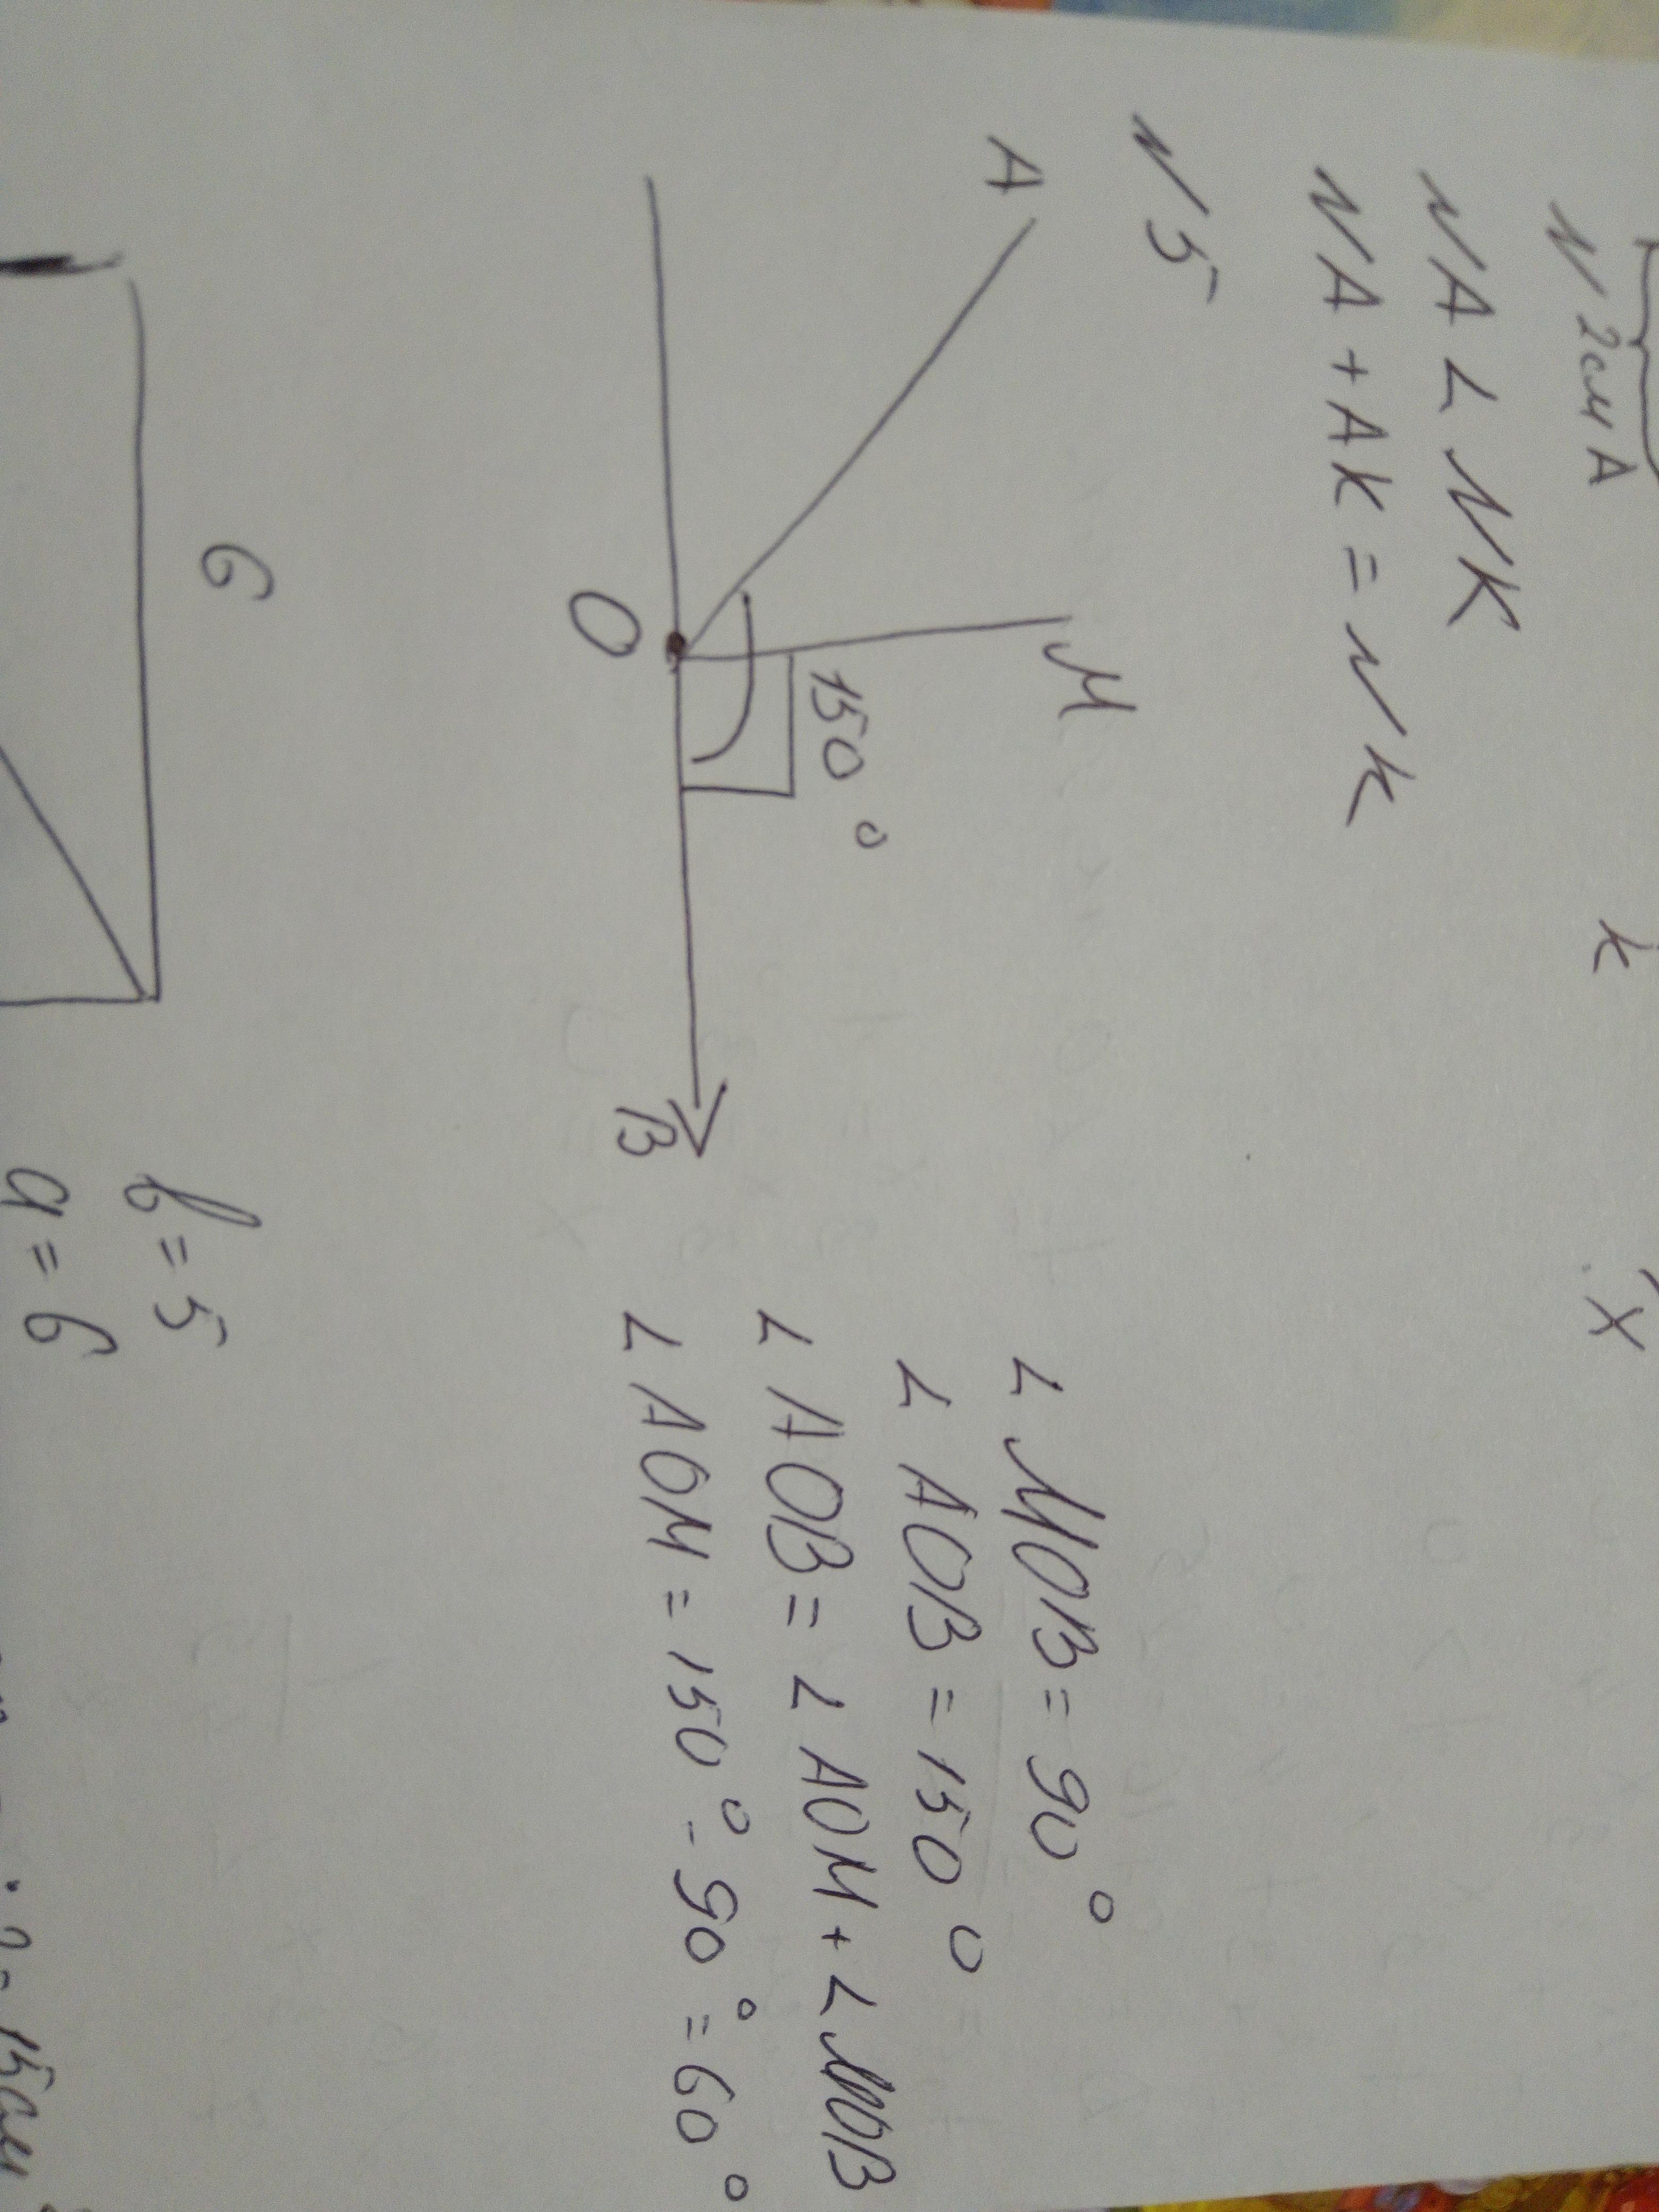 N 2см A
K
X
NA L NK
NA + AK = NK
N 5
A
M
150°
O
B
∠ MOB = 90°
∠ AOB = 150°
∠ AOB = ∠ AOM + ∠ MOB
∠ AOM = 150° - 90° = 60°
6
b = 5
a = 6